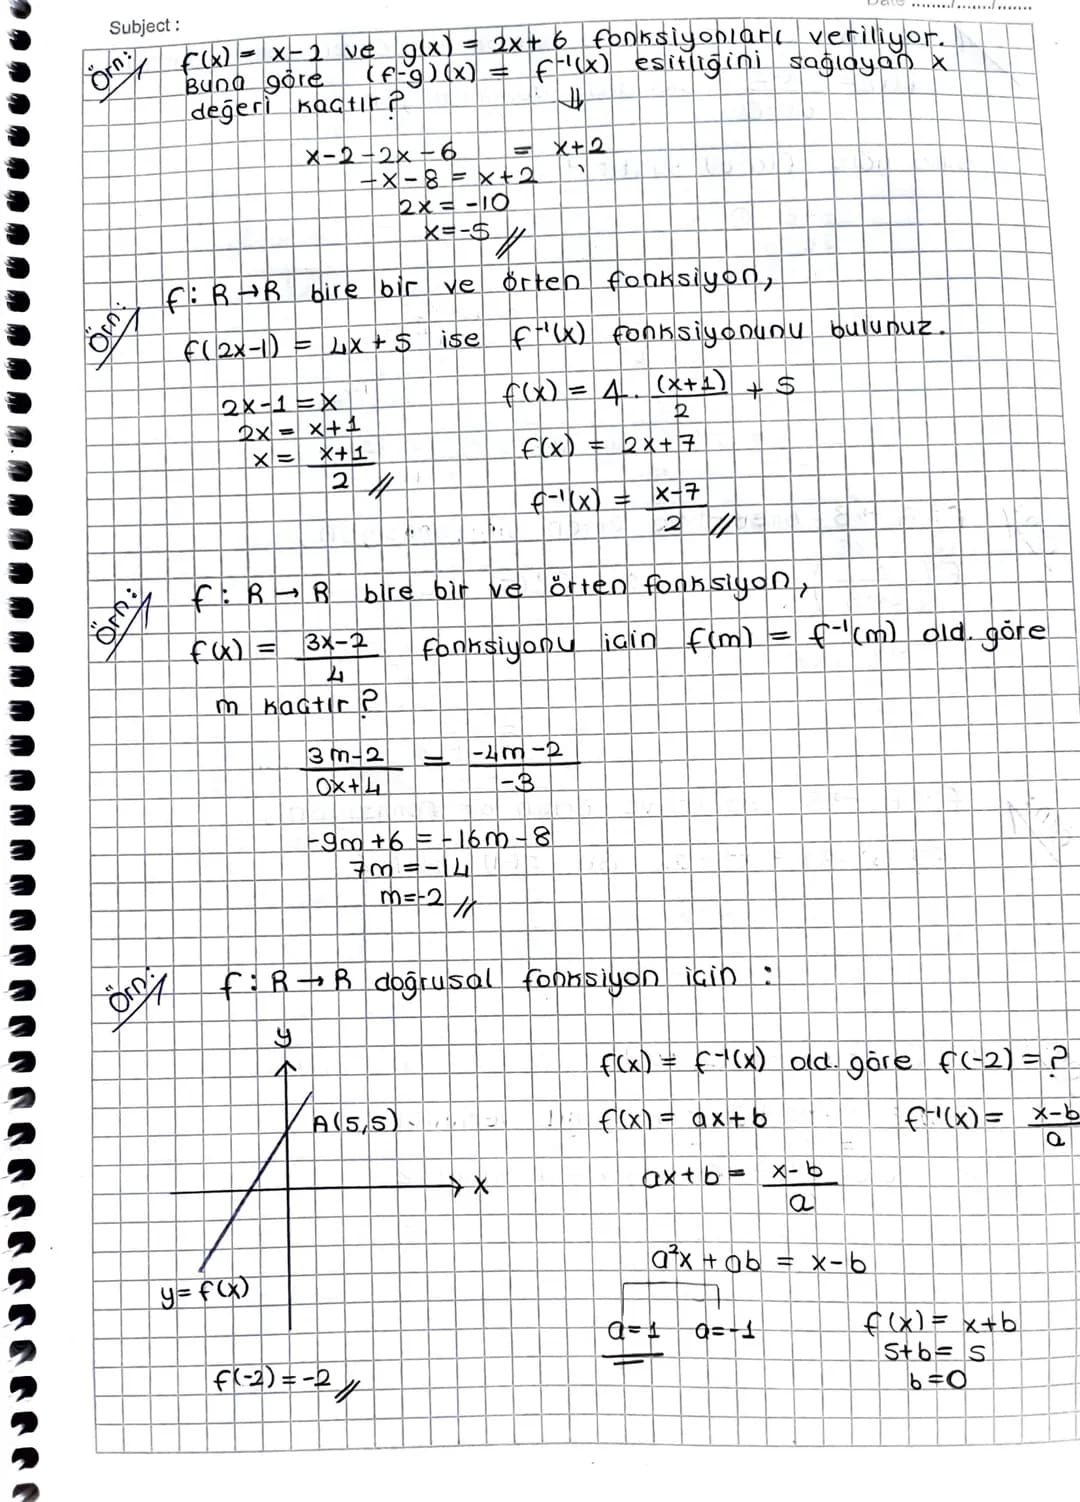 Subject :
Date ......../......../........
Örn: f(x) = x-2 ve g(x) = 2x+6 fonksiyonları veriliyor.
Buna göre (f-g)(x) = f⁻¹(x) esitliğini sağlayan x
değeri kaçtır?
⇓
x-2-2x-6 = x+2
-x-8 = x+2
2x = -10
x=-5 //
Örn: f: R→R bire bir ve örten fonksiyon,
f(2x-1) = 4x+5 ise f⁻¹(x) fonksiyonunu bulunuz.
2x-1=x
2x = x+1
x = x+1/2 //
f(x) = 4. (x+1)/2 + 5
f(x) = 2x+7
f⁻¹(x) = x-7/2 //
Örn: f: R→R bire bir ve örten fonksiyon,
f(x) = 3x-2/4 fonksiyonu için f(m) = f⁻¹(m) old. göre
m kaçtır?
3m-2/0x+4 = -4m-2/-3
-9m+6 = -16m-8
7m = -14
m=-2 //
Örn: f: R→R doğrusal fonksiyon için :
y
A(5,5)
x
y=f(x)
f(-2) = -2 //
f(x) = f⁻¹(x) old. göre f(-2) = ?
f(x) = ax+b f⁻¹(x) = x-b/a
ax+b = x-b/a
a²x + ab = x-b
a=1 a=-1
f(x) = x+b
5+b= 5
b=0